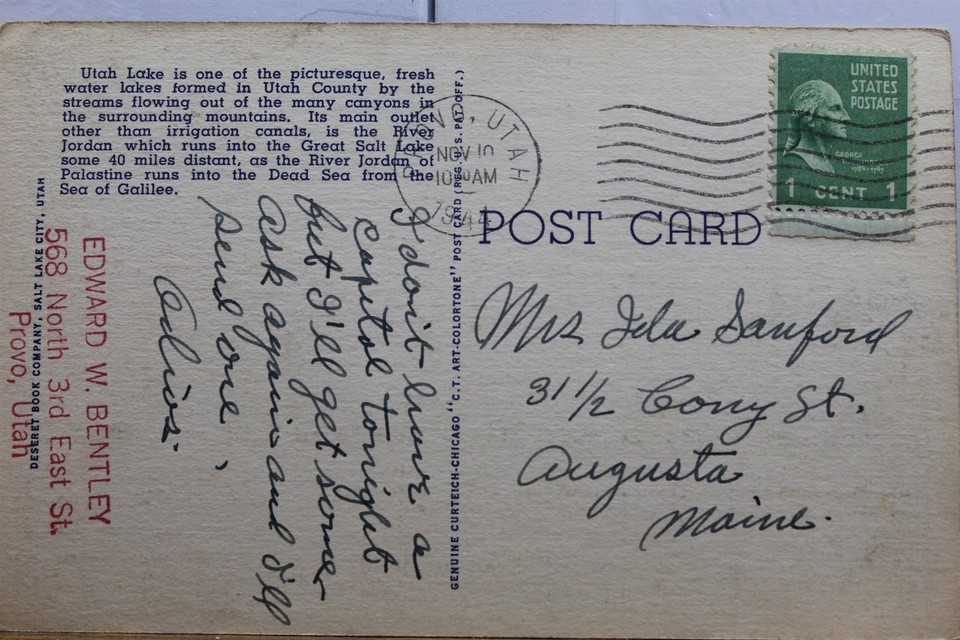 Utah Lake is one of the picturesque, fresh
water lakes formed in Utah County by the
streams flowing out of the many canyons in
the surrounding mountains. Its main outlet
other than irrigation canals, is the River
Jordan which runs into the Great Salt Lake
some 40 miles distant, as the River Jordan of
Palastine runs into the Dead Sea from the
Sea of Galilee.
I don't have a
Capitol tonight
but I'll get some
ask again and I'll
send one.
Adios.
EDWARD W. BENTLEY
568 North 3rd East St.
Provo, Utah
DESERET BOOK COMPANY, SALT LAKE CITY, UTAH
GENUINE CURTEICH-CHICAGO "C.T. ART-COLORTONE" POST CARD (REG. U.S. PAT. OFF.)
PROVO, UTAH
NOV 10
10 AM
1944
UNITED
STATES
POSTAGE
GEORGE
1 CENT 1
POST CARD
Mrs Ida Sanford
31 1/2 Cony St.
Augusta
Maine.